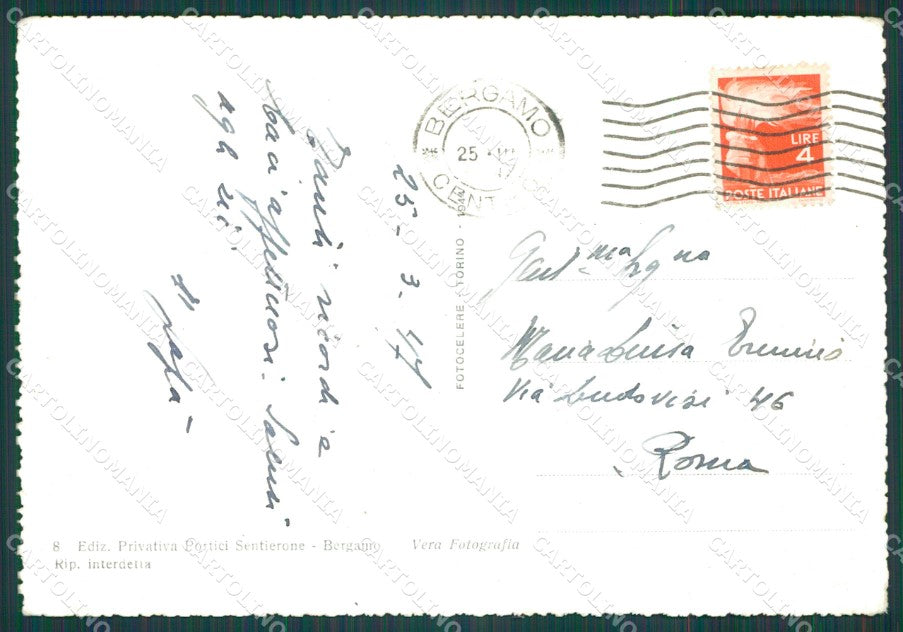 BERGAMO
25 · III
CENTRO
LIRE
4
POSTE ITALIANE
25 - 3 - 47
ricordi e
baci affettuosi. Saluti
agli zii
Gent.ma Sig.na
Maria Luisa
Via Ludovisi 46
Roma
FOTOCELERE - TORINO - 194
8 Ediz. Privativa Portici Sentierone - Bergamo Vera Fotografia
Rip. interdetta
CARTOLINOMANIA